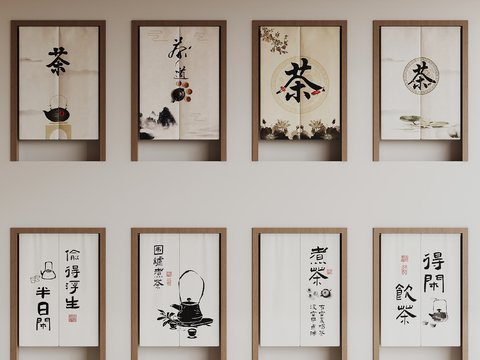 茶
茶道
茶
茶
偷得浮生
半日閑
圍爐煮茶
煮茶
得閑
飲茶